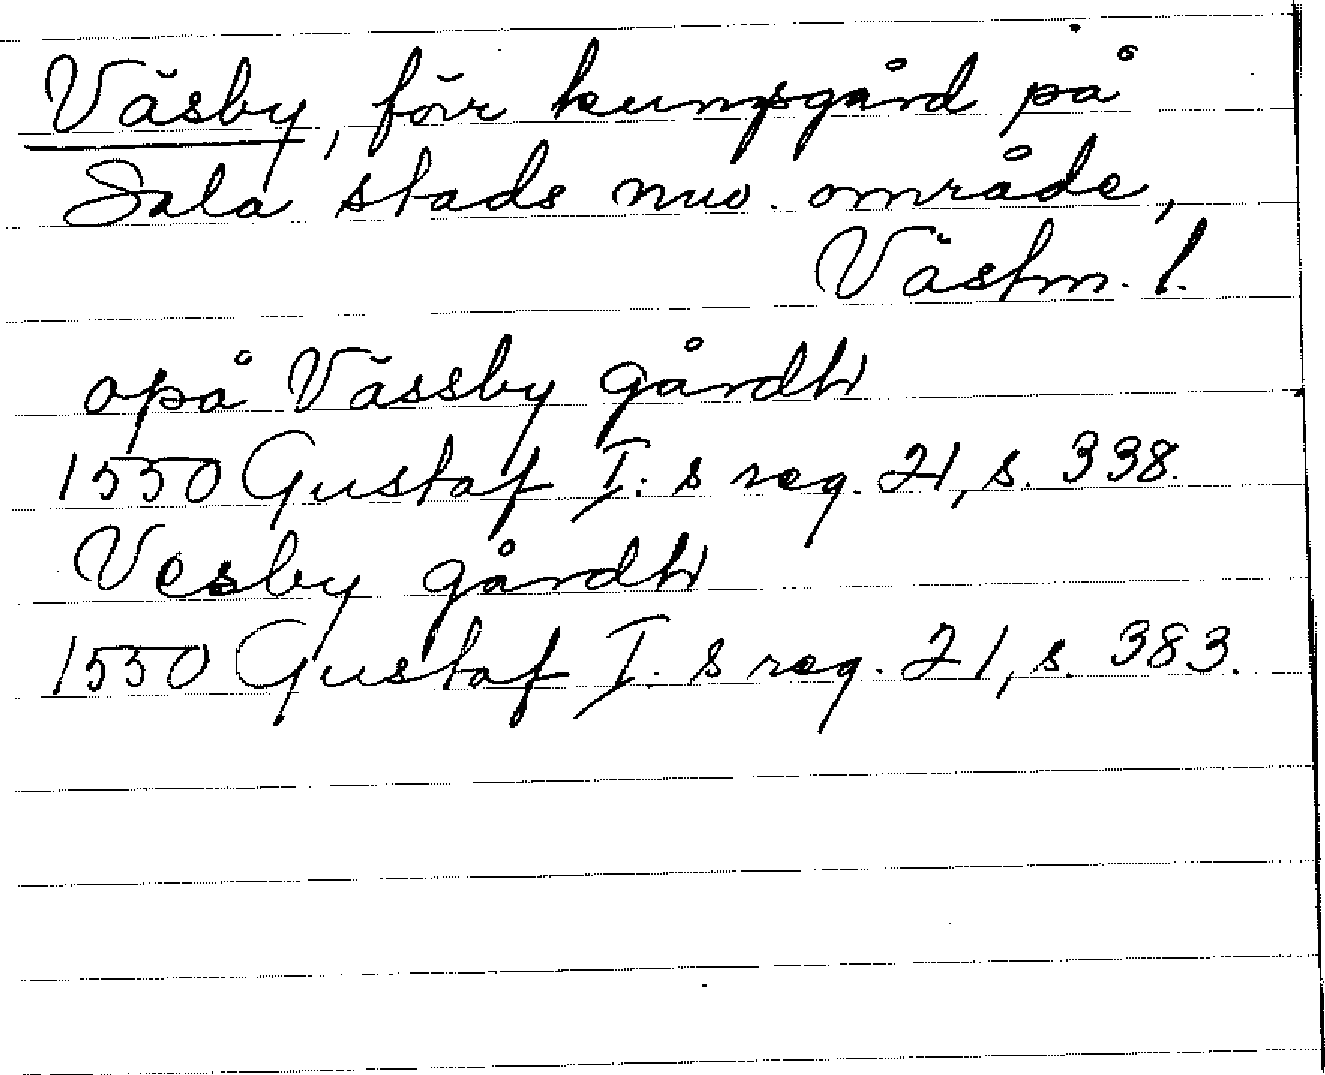 Väsby, förr kungsgård på
Sala stads nuv. område,
Västm. l.
opå Vässby gårdh
1550 Gustaf I:s reg. 21, s. 338.
Vesby gårdh
1550 Gustaf I:s reg. 21, s. 383.